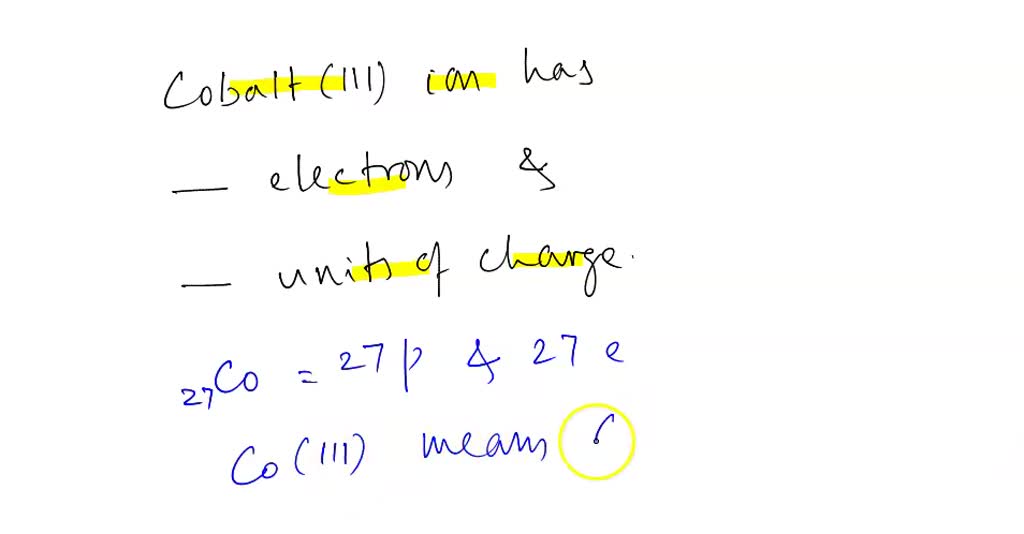 Cobalt (III) ion has
— electrons &
— units of charge.
27Co = 27 p & 27 e
Co (III) means